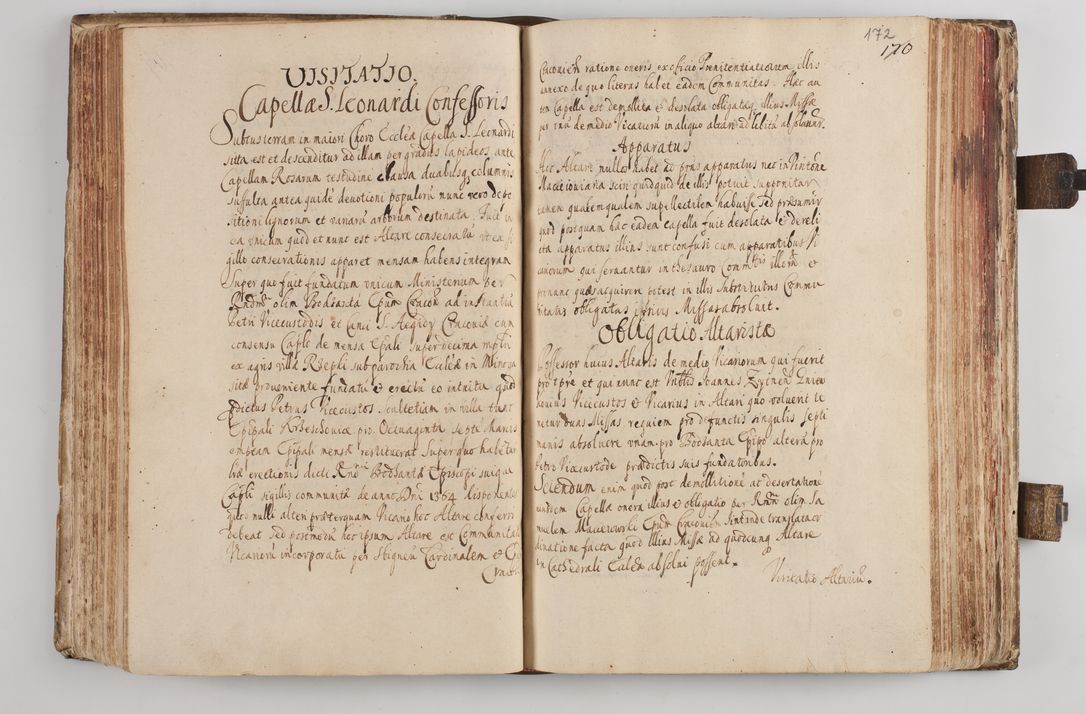 VISITATIO.
Capella S. Leonardi Confessoris
Subtus terram in maiori Choro Ecclẽa Capella S. Leonardi
sitta est et descenditur ad illam per gradus lapideos ante
Capellam Rosarum testudine clausa duabusq; columnis
sufulta antea quidẽ devotioni populorũ nunc vero depo
sitioni lignorum et variarũ arborum destinata. Fuit in
ea unicum quod et nunc est Altare consecratũ ut ex si
gillo consecrationis apparet mensam habens integram
Super quo fuit fundatum unicum Ministerium per
Rndm̃ olim Bodsanta Epum Cracoũ ad instantia
Petri Vicecustodis et Canci S. Aegidy Cracouiẽ cum
consensu Caplo de mensa Epali super decima
ex agris villa Rzepli sub parochia Ecclẽa in Minoga
sita proueniente fundatũ et erectũ eo intuitu quod
dictus Petrus Vicecustos Scultetiam in villa tunc
Epipali Krzeschouice pro Octuaginta septe Marcis
emptam Epipali mensa restituerat Super quo habetur
bia erectionis dicti Rndi Bodsanta Episcopi suiqe
Capli sigillis communitã de anno Dni 1364 disponentes
quod nulli alteri præterquam Vicario hoc Altare conferri
debeat Sed postmodũ hoc ipsum Altare est Communitati
Vicariorũ incorporatũ per Sbigneũ Cardinalem et Ep̃
Craco
172
170
Cracouieñ ratione oneris ex officio Pœnitentiariorum illis
annexo de quo literas habet eadem Communitas. Hæc au
tem Capella est demollita et desolata obligatioq; illius Missæ
per unũ de medio Vicariorũ in aliquo altari ad libitũ absoluunt̃.
Apparatus
Hoc Altare nullos habet ad præs apparatus nec in Visitõne
Macieiouiana sciri quidquid de illis potuit supponitur
tamen qualemqualem supellectilem habuisse sed præsumitur
quod postquam hæc eadem capella fuit desolata et dereli
cta apparatus illius sunt confusi cum apparatibus Vi
cariorum qui seruantur in thesauro Comm̃tis illorũ et
nunc quos acquirere potest in illis substitutus Commu
nitatis obligatus ipsius Missas absoluit.
Obligatio Altaristæ
Possessor huius Altaris de medio Vicariorum qui fuerit
pro tpre et qui nunc est Vnblis Ioannes Zytnen Zniew
kouius Vicecustos et Vicarius in Altari quo voluerit te
netur duas Missas requiem pro defunctis singulis septi
manis absoluere unam pro Bodsanta Epipo alterã pro
Petro Vicecustode prædictis suis fundatoribus.
Sciendum enim quod post demollitionẽ at desertatione
eiusdem Capellæ onera illius et obligatio per Rndm̃ olim Sa
muelem Macieiowski Epum Cracouieñ sint inde translata or
dinatione facta quod illius Missæ ad quodcunq; Altare
in Cathedrali Ecclẽa absolui possent.
Visitatio Altariũ.